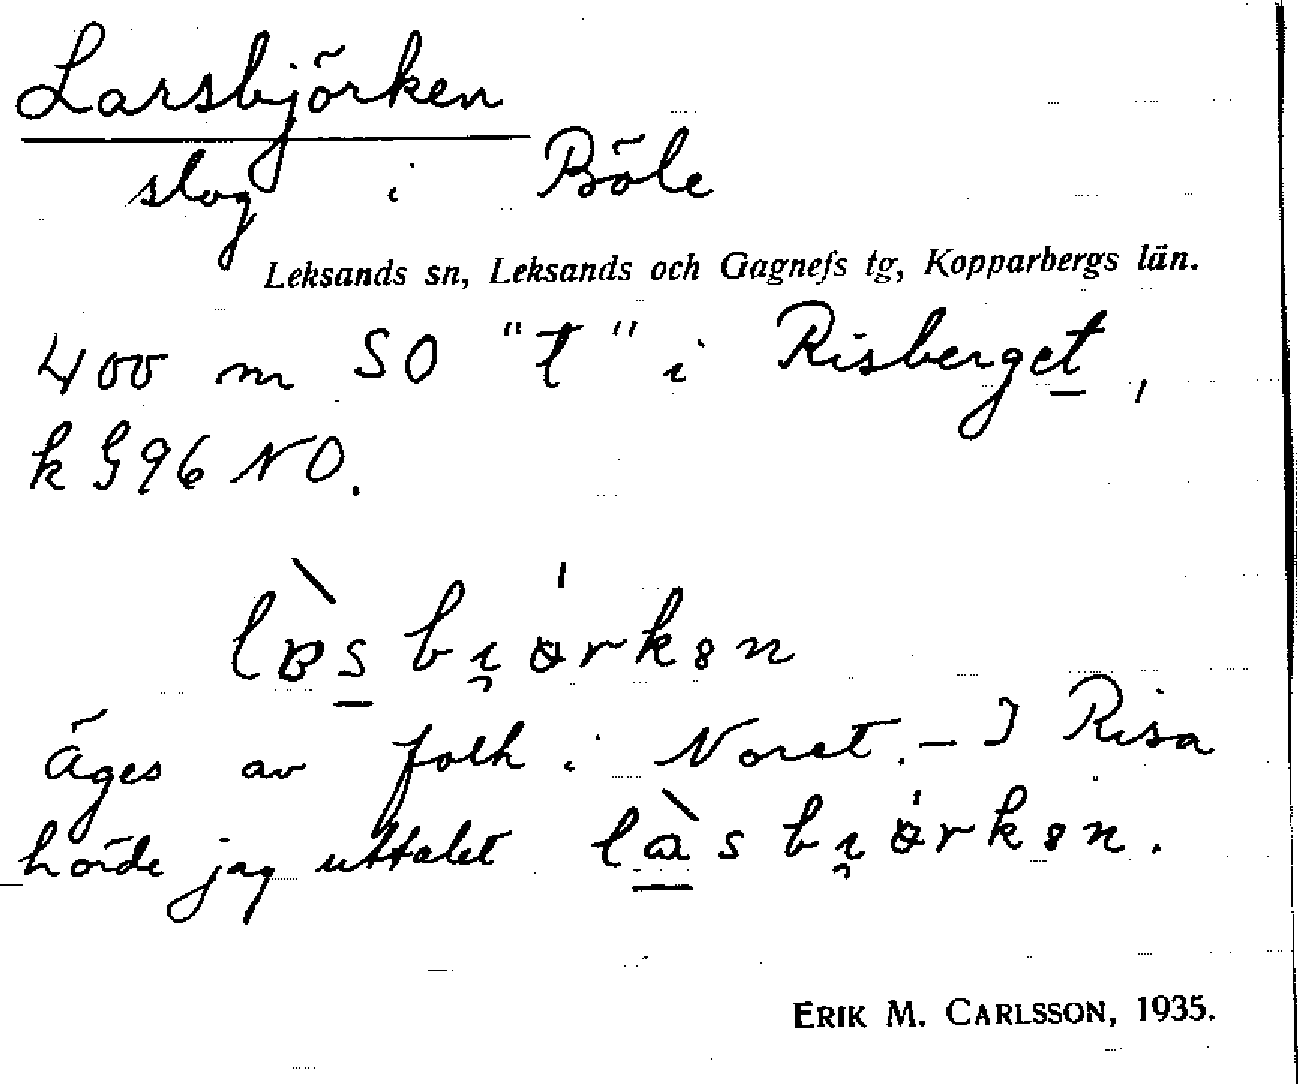 Larsbjörken
slog i Böle
Leksands sn, Leksands och Gagnefs tg, Kopparbergs län.
400 m SO "t" i Risberget,
k § 96 NO.
Äges av folk i Noret. – I Risa
hörde jag uttalet
ERIK M. CARLSSON, 1935.